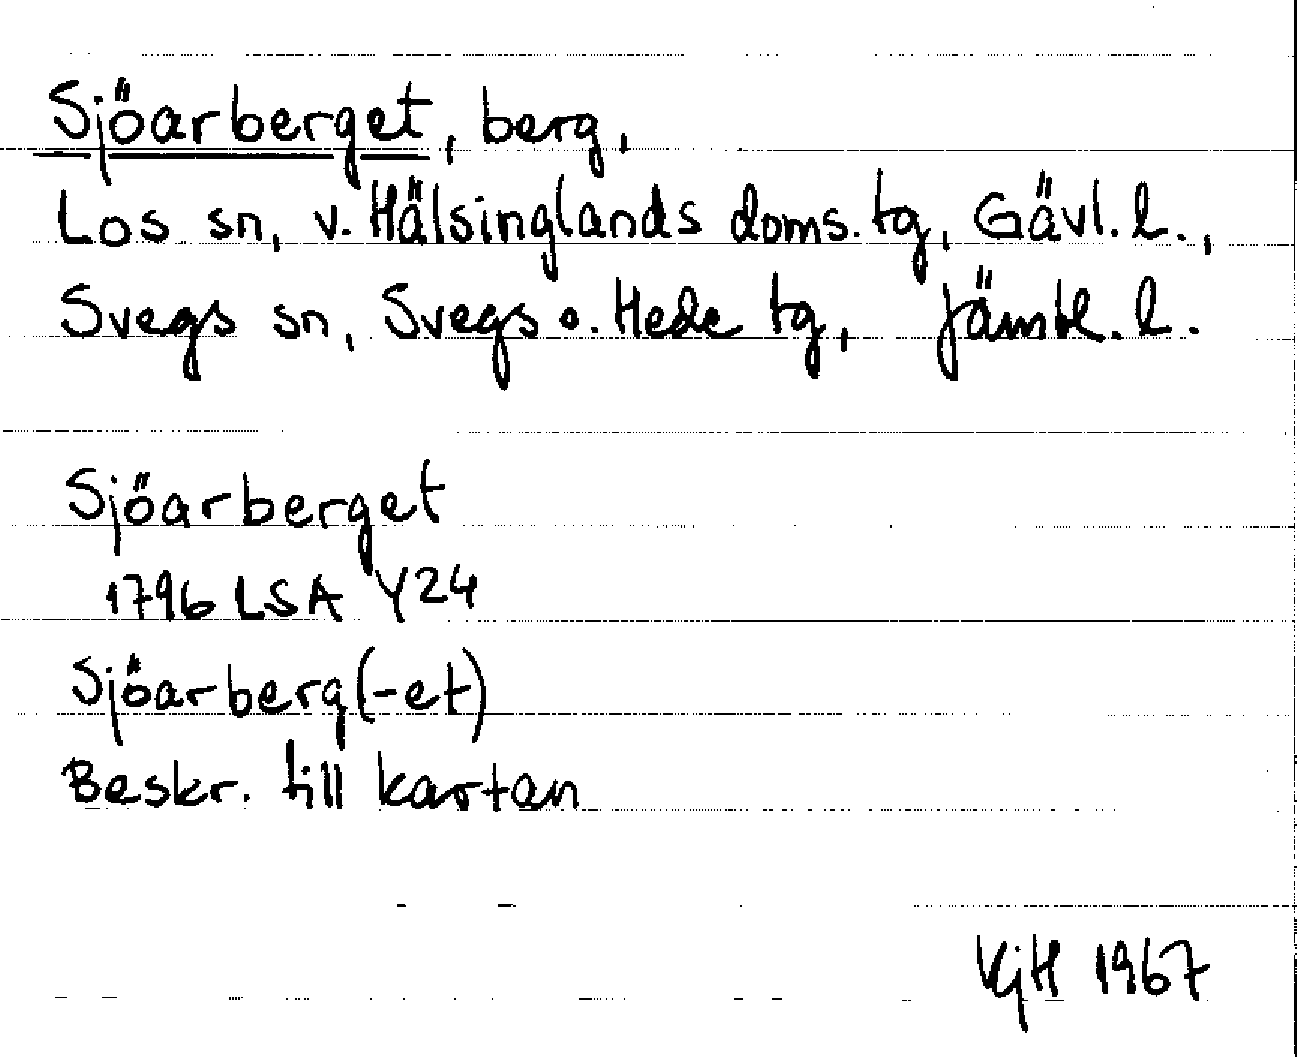 Sjöarberget, berg,
Los sn, v. Hälsinglands doms. tg, Gävl. l.,
Svegs sn, Svegs o. Hede tg, Jämtl. l.
Sjöarberget
1796 LSA Y24
Sjöarberg(-et)
Beskr. till kartan
VGjH 1967